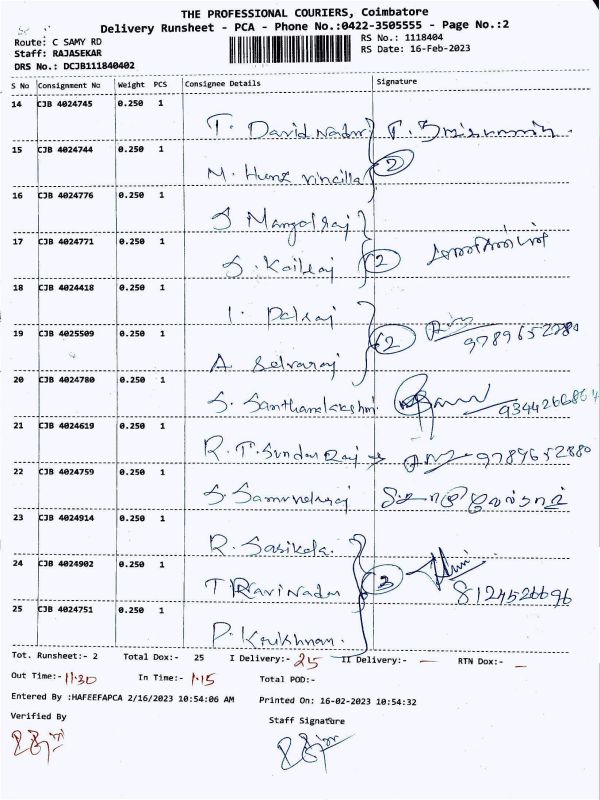 THE PROFESSIONAL COURIERS, Coimbatore
Delivery Runsheet - PCA - Phone No.:0422-3505555 - Page No.:2
Route: C SAMY RD
RS No.: 1118404
Staff: RAJASEKAR
RS Date: 16-Feb-2023
DRS No.: DCJB111840402
S No Consignment No Weight PCS Consignee Details Signature
14 CJB 4024745 0.250 1
T. David Nadar
15 CJB 4024744 0.250 1
2
M.
16 CJB 4024776 0.250 1
S Mangalraj
17 CJB 4024771 0.250 1
S. Kailraj 2
18 CJB 4024418 0.250 1
I. Palraj
19 CJB 4025509 0.250 1
2 9789652880
A Selvaraj
20 CJB 4024780 0.250 1
S. Santhanalakshmi
21 CJB 4024619 0.250 1
R. T. Sundar Raj 9789652880
22 CJB 4024759 0.250 1
S.
23 CJB 4024914 0.250 1
R. Sasikala
24 CJB 4024902 0.250 1
T Ravi Nadar 3 8124526696
25 CJB 4024751 0.250 1
P.
Tot. Runsheet:- 2 Total Dox:- 25 I Delivery:- 25 II Delivery:- — RTN Dox:- —
Out Time:- 11.30 In Time:- 1.15 Total POD:-
Entered By :HAFEEFAPCA 2/16/2023 10:54:06 AM Printed On: 16-02-2023 10:54:32
Verified By Staff Signature